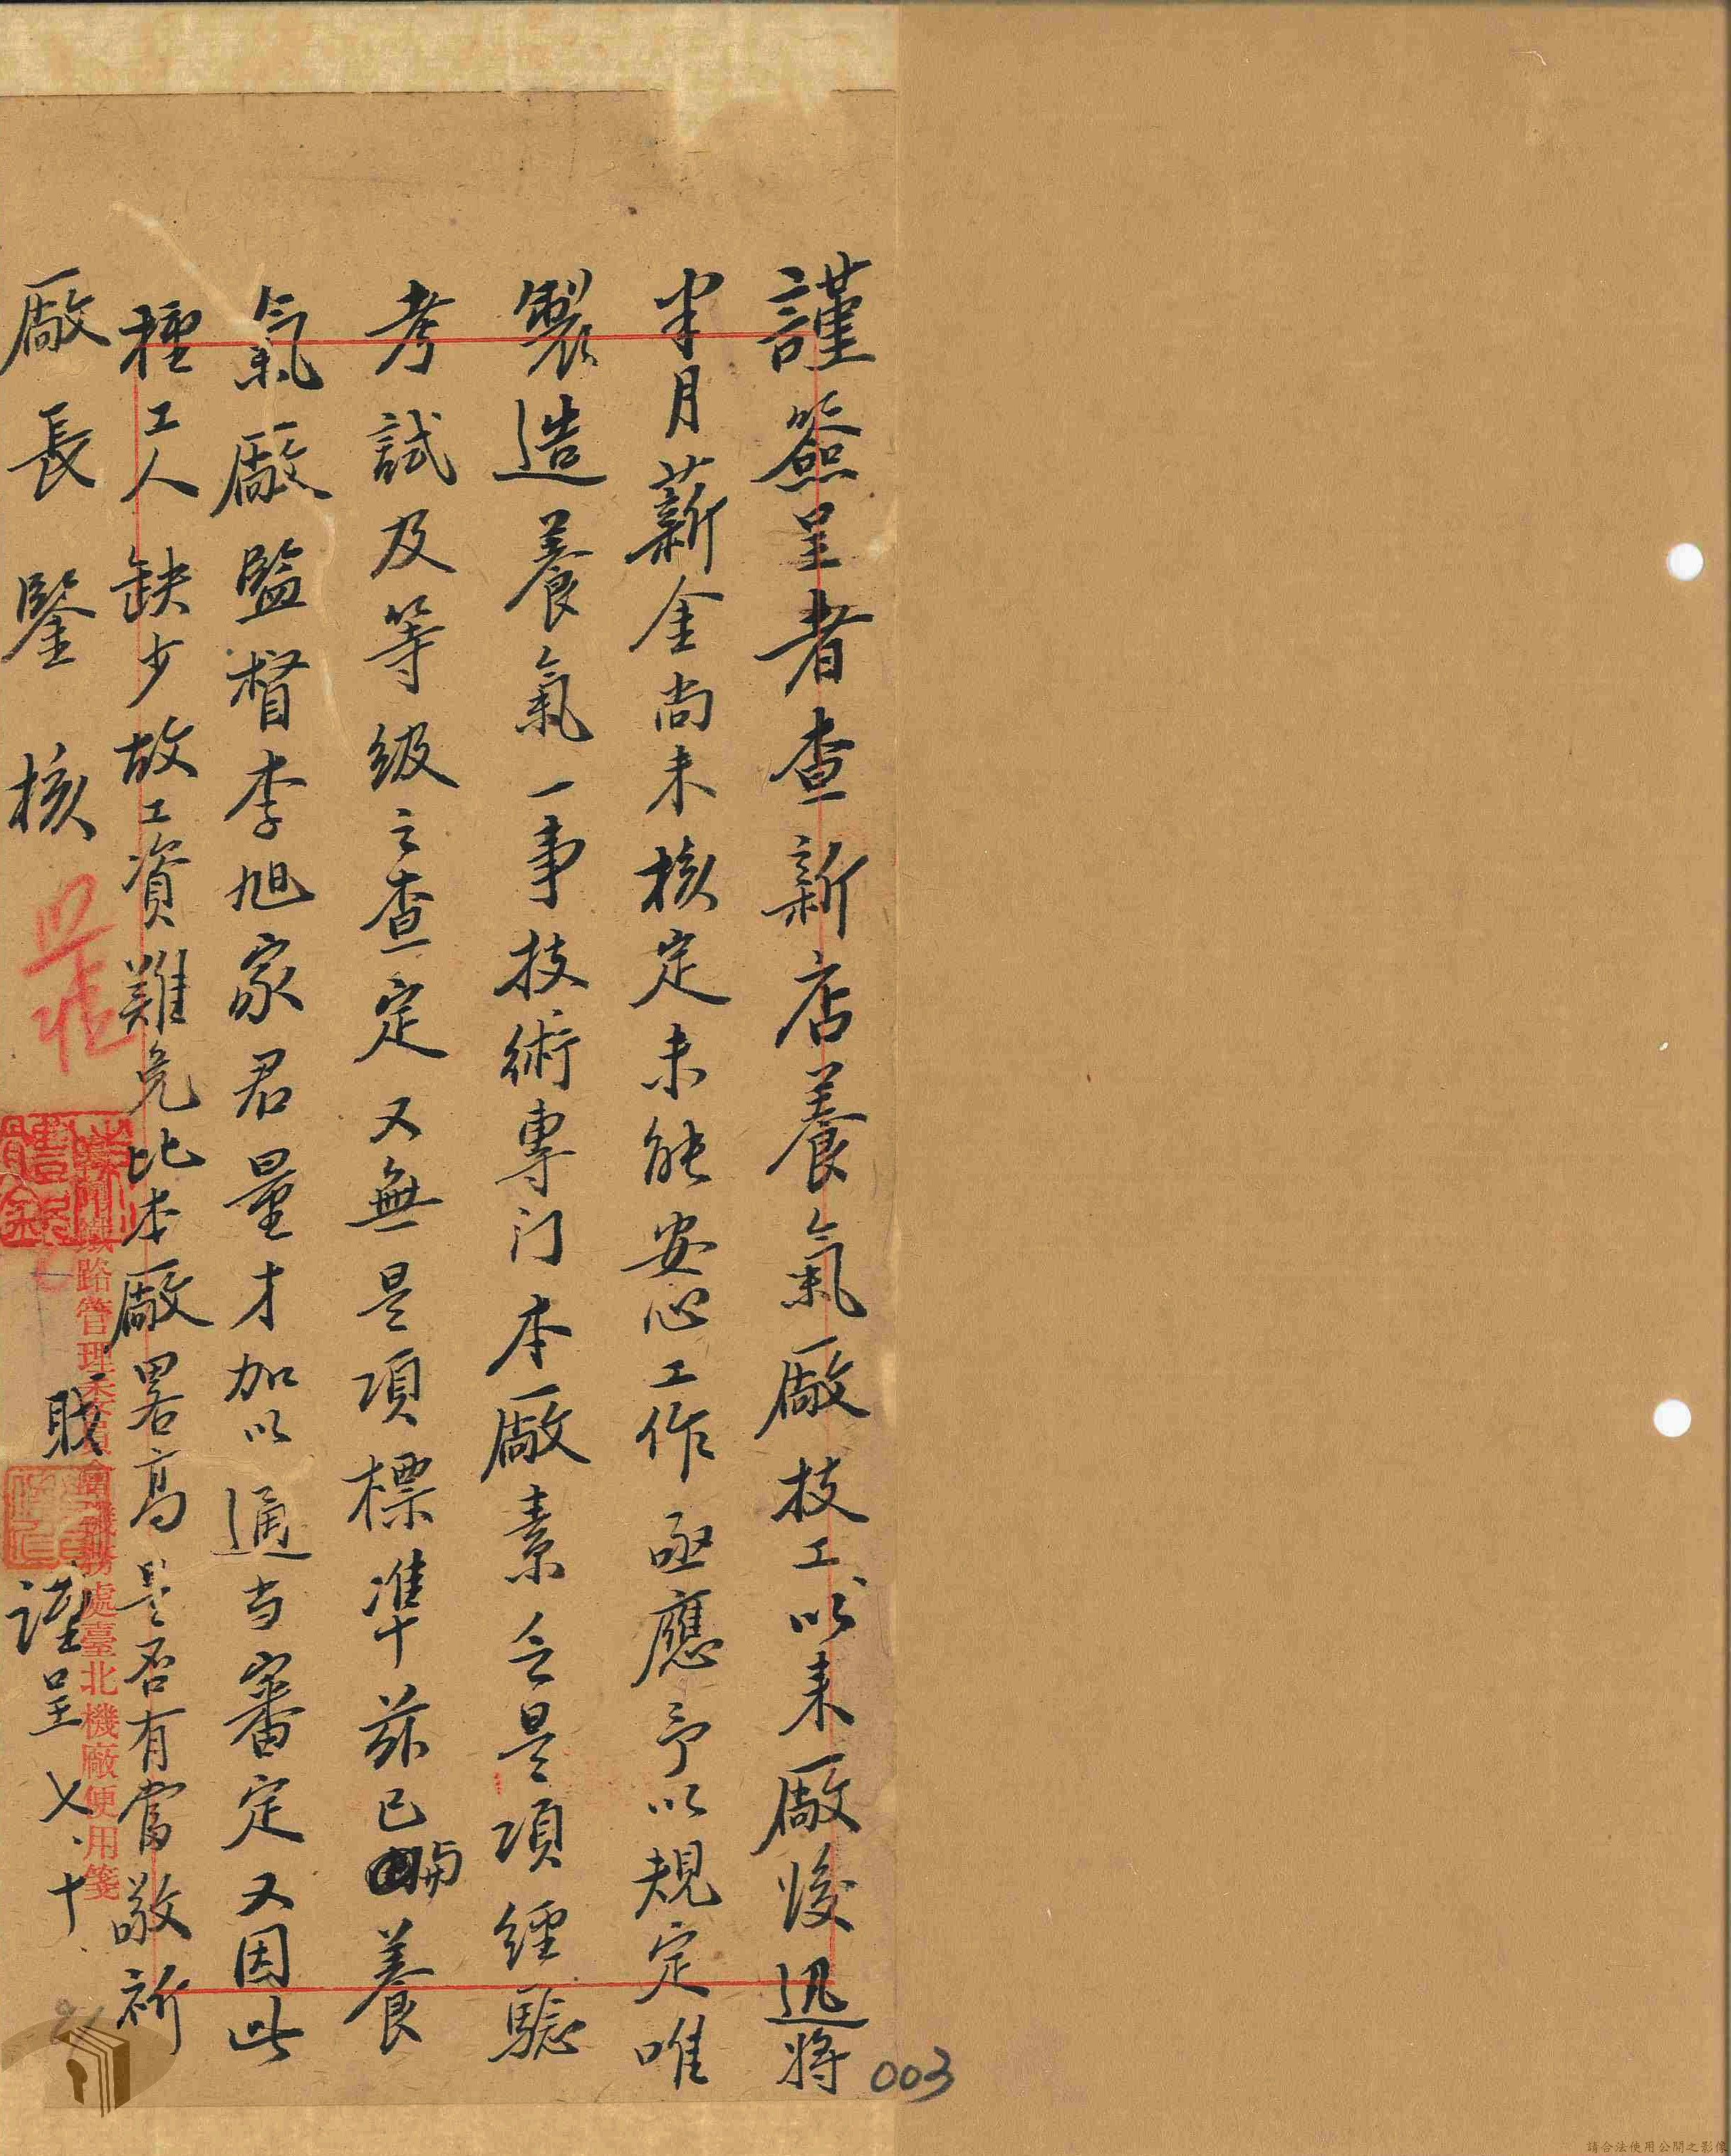 謹簽呈者查新店養氣廠技工以來廠後迅將
半月薪金尚未核定未能安心工作亟應予以規定唯
製造養氣一事技術專门本廠素乏是項經驗
考試及等級之查定又無是項標準茲已與養
氣廠監督李旭家君量才加以適当審定又因此
種工人缺少故工資難免比本廠畧高是否有當敬祈
廠長鑒核
職 謹呈 七、十、
鐵路管理委員會機務處臺北機廠便用箋
003
請合法使用公開之影像